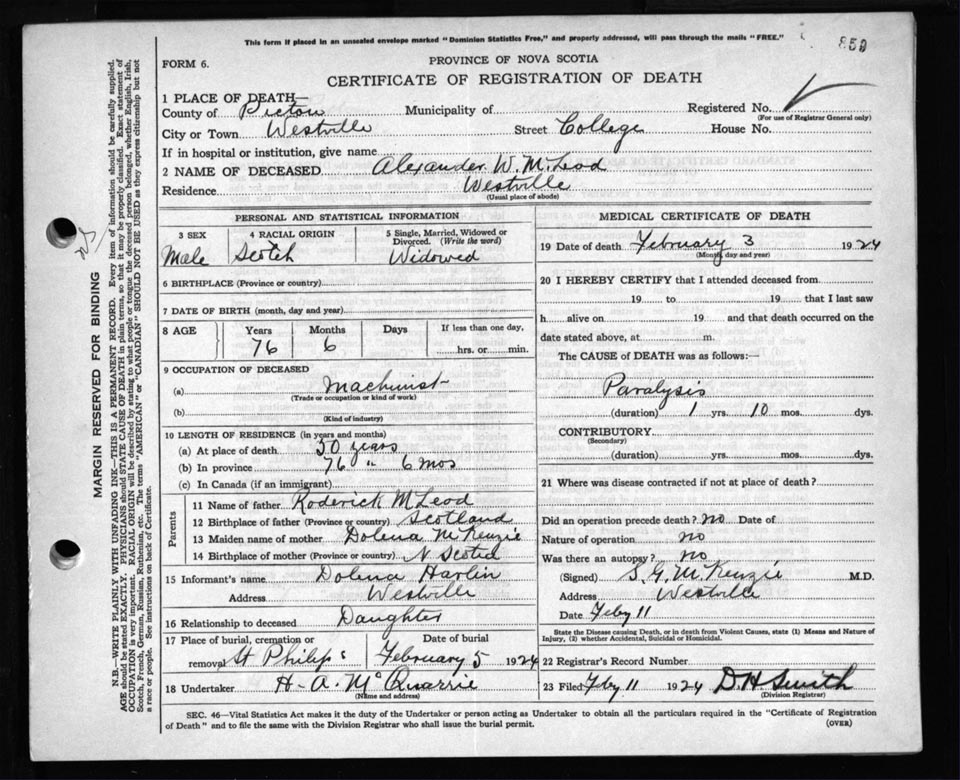 This form if placed in an unsealed envelope marked "Dominion Statistics Free," and properly addressed, will pass through the mails "FREE."
850
FORM 6.
PROVINCE OF NOVA SCOTIA
CERTIFICATE OF REGISTRATION OF DEATH
1 PLACE OF DEATH—
County of Pictou Municipality of Registered No.
(For use of Registrar General only)
City or Town Westville Street College House No.
If in hospital or institution, give name
2 NAME OF DECEASED Alexander W. McLeod
Residence Westville
(Usual place of abode)
PERSONAL AND STATISTICAL INFORMATION
3 SEX 4 RACIAL ORIGIN 5 Single, Married, Widowed or
Divorced. (Write the word)
Male Scotch Widowed
6 BIRTHPLACE (Province or country)
7 DATE OF BIRTH (month, day and year)
8 AGE Years Months Days If less than one day,
76 6 hrs. or min.
9 OCCUPATION OF DECEASED
(a) Machinist
(Trade or occupation or kind of work)
(b)
(Kind of industry)
10 LENGTH OF RESIDENCE (in years and months)
(a) At place of death 50 years
(b) In province 76 " 6 mos
(c) In Canada (if an immigrant)
Parents
11 Name of father Roderick McLeod
12 Birthplace of father (Province or country) Scotland
13 Maiden name of mother Dolena McKenzie
14 Birthplace of mother (Province or country) N Scotia
15 Informant's name Dolena Harlin
Address Westville
16 Relationship to deceased Daughter
17 Place of burial, cremation or Date of burial
removal St Philips February 5 1924
18 Undertaker H. A. McQuarrie
(Name and address)
MEDICAL CERTIFICATE OF DEATH
19 Date of death February 3 1924
(Month, day and year)
20 I HEREBY CERTIFY that I attended deceased from
19 to 19 that I last saw
h alive on 19 and that death occurred on the
date stated above, at m.
The CAUSE of DEATH was as follows:—
Paralysis
(duration) 1 yrs. 10 mos. dys.
CONTRIBUTORY
(Secondary)
(duration) yrs. mos. dys.
21 Where was disease contracted if not at place of death?
Did an operation precede death? no Date of
Nature of operation no
Was there an autopsy? no
(Signed) S. G. McKenzie M.D.
Address Westville
Date Feby 11
State the Disease causing Death, or in death from Violent Causes, state (1) Means and Nature of
Injury, (2) whether Accidental, Suicidal or Homicidal.
22 Registrar's Record Number
23 Filed Feby 11 1924 D. H. Smith
(Division Registrar)
SEC. 46—Vital Statistics Act makes it the duty of the Undertaker or person acting as Undertaker to obtain all the particulars required in the "Certificate of Registration
of Death" and to file the same with the Division Registrar who shall issue the burial permit.
(OVER)
MARGIN RESERVED FOR BINDING
N.B.—WRITE PLAINLY WITH UNFADING INK—THIS IS A PERMANENT RECORD. Every item of information should be carefully supplied.
AGE should be stated EXACTLY. PHYSICIANS should STATE CAUSE OF DEATH in plain terms, so that it may be properly classified. Exact statement of
OCCUPATION is very important. RACIAL ORIGIN will be described by stating to what people or tongue the deceased person belonged, whether English, Irish,
Scotch, French, German, Russian, Ruthenian, etc. The terms "AMERICAN" or "CANADIAN" SHOULD NOT BE USED as they express citizenship but not
a race or people. See instructions on back of Certificate.